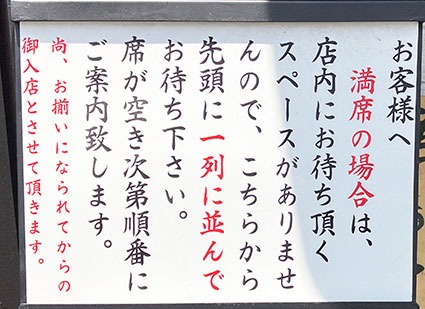 お客様へ
満席の場合は、
店内にお待ち頂く
スペースがありませ
んので、こちらから
先頭に一列に並んで
お待ち下さい。
席が空き次第順番に
ご案内致します。
尚、お揃いになられてからの
御入店とさせて頂きます。